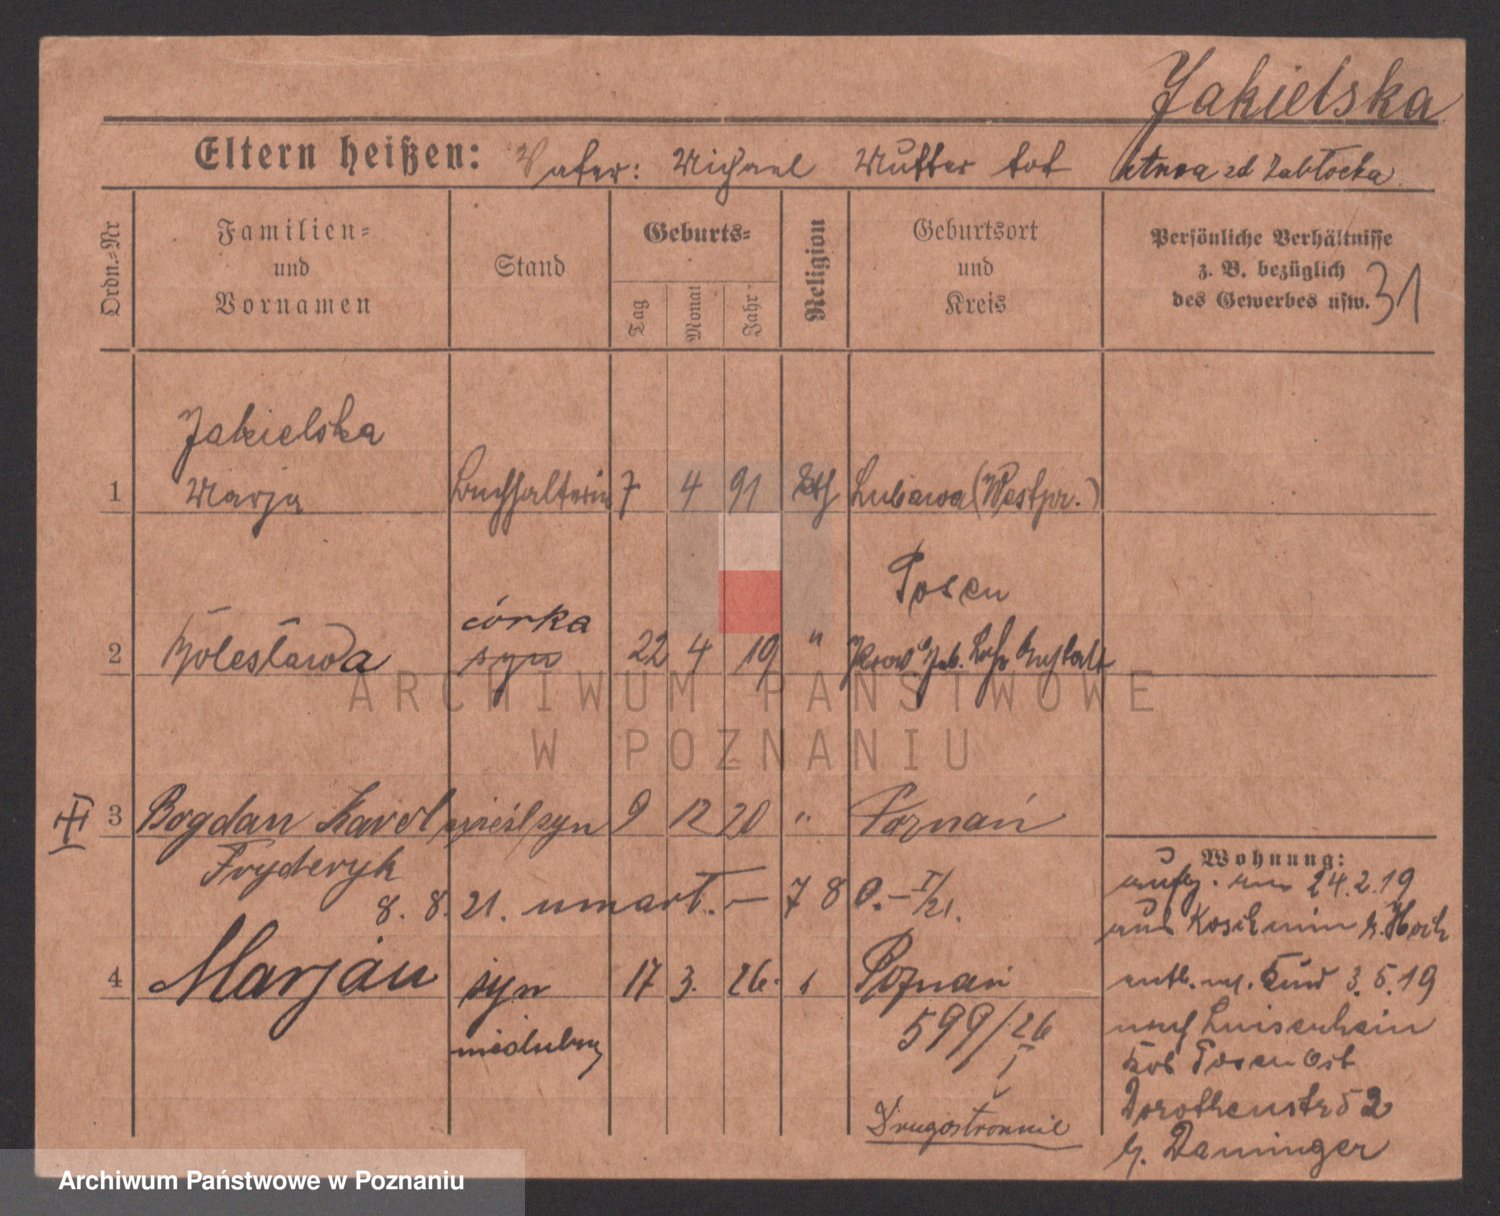 Jakielska
Eltern heißen: Vater: Michael Mutter tot Anna zd Zabłocka
Ordn.-Nr
Familien-
und
Vornamen
Stand
Geburts-
Tag
Monat
Jahr
Religion
Geburtsort
und
Kreis
Persönliche Verhältnisse
z. B. bezüglich
des Gewerbes usw.
31
Jakielska
1 Marja Buchhalterin 7 4 91 kth Lubawa (Westpr.)
Posen
córka
2 Bolesława syn 22 4 19 "
ARCHIWUM PAŃSTWOWE
W POZNANIU
3 Bogdan Karol nieśl. syn 9 12 20 " Poznań
Fryderyk
8. 8. 21. umart. — 7 8 0. – I/21.
Wohnung:
24.2.19
aus Koschmin
4 Marjan syn 17 3. 26. Poznań
3.5.19
nieślubny
599/26
I
nach Luisenhain
Posen Ost
Dorothenstr 52
b. Daminger
Drugostronnie
Archiwum Państwowe w Poznaniu